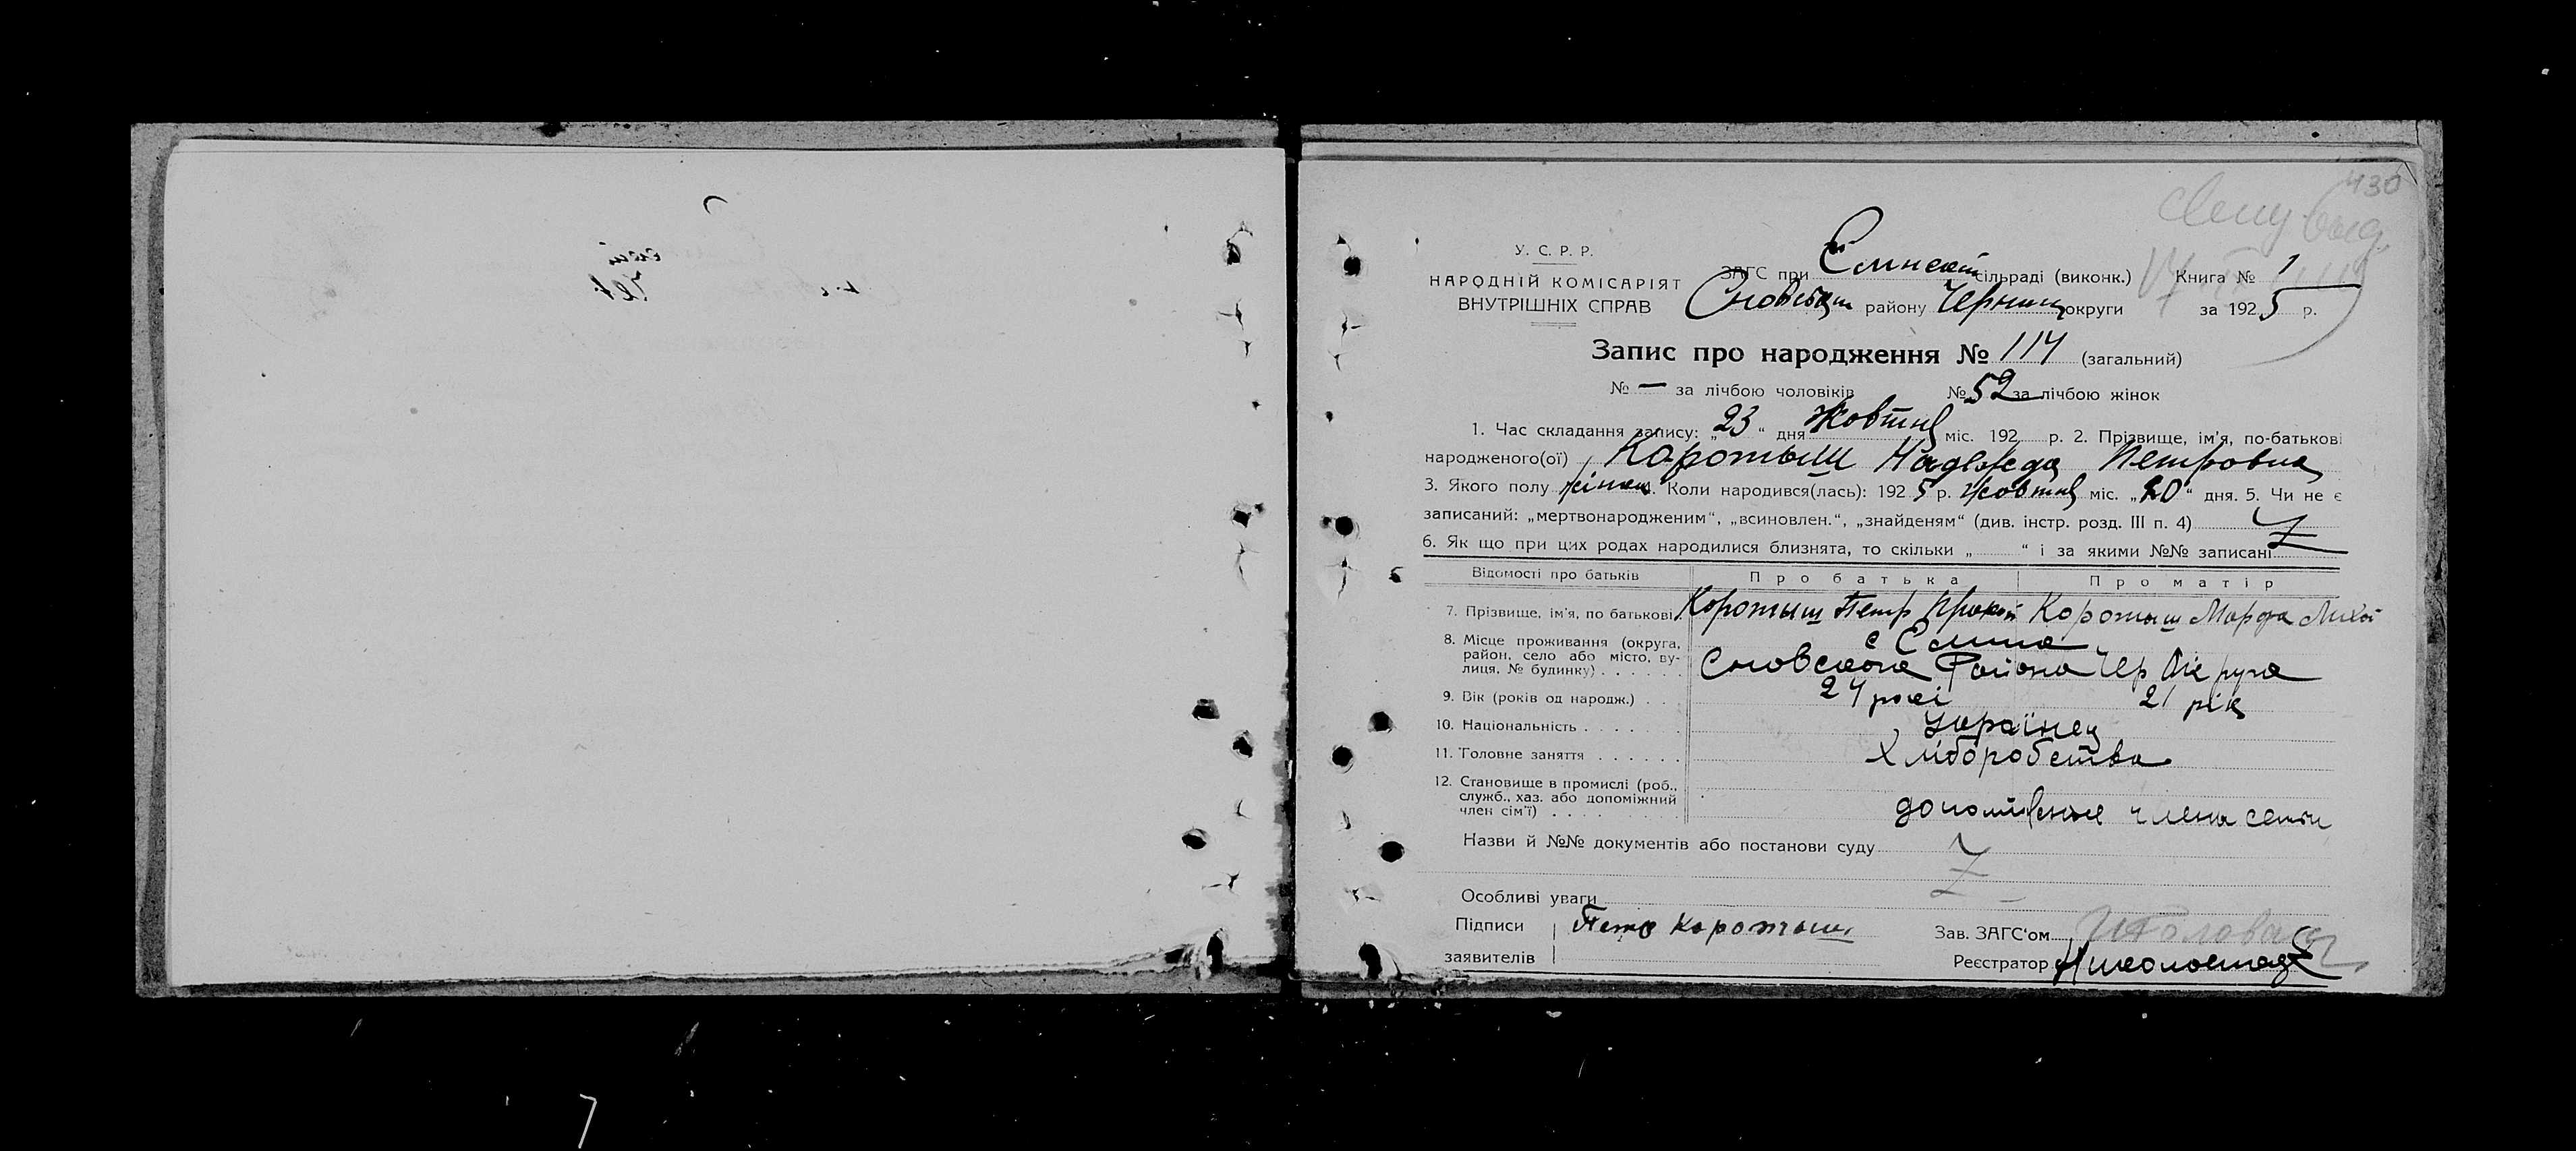 430
У. С. Р. Р.
НАРОДНІЙ КОМІСАРІЯТ
ВНУТРІШНІХ СПРАВ
ЗАГС при Елинской сільраді (виконк.) Книга № 1
Сновський району Черниг округи за 1925 р.
Запис про народження № 114 (загальний)
№ — за лічбою чоловіків № 52 за лічбою жінок
1. Час складання запису: „23“ дня Жовтня міс. 192 р. 2. Прізвище, ім'я, по-батькові
народженого(ої) Коротыш Надежда Петровна
3. Якого полу жіноч. 4. Коли народився(лась): 1925 р. Жовтня міс. „20“ дня. 5. Чи не є
записаний: „мертвонародженим“, „всиновлен.“, „знайденям“ (див. інстр. розд. III п. 4)
6. Як що при цих родах народилися близнята, то скільки „ “ і за якими №№ записані
Відомості про батьків Про батька Про матір
7. Прізвище, ім'я, по батькові. Коротыш Петр Прокоп Коротыш Марфа Михай
8. Місце проживання (округа, район, село або місто, вулиця, № будинку) с Елина
Сновского Района Чер Округа
9. Вік (років од народж.) 24 рокі 21 рік
10. Національність Українец
11. Головне заняття Хліборобства
12. Становище в промислі (роб., служб., хаз. або допоміжний член сім'ї) члена семьи
Назви й №№ документів або постанови суду
Особливі уваги
Підписи Петр Коротыш Зав. ЗАГС'ом
заявителів Реєстратор